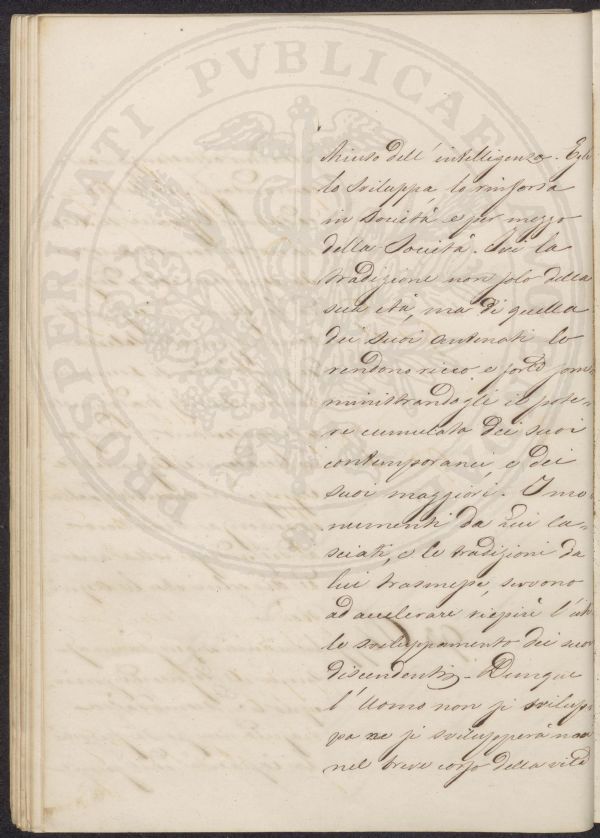 PROSPERITATI PVBLICAE
chiuso dell' intelligenza. Egli
lo sviluppa, lo rinforza
in società, e per mezzo
della Società. Ivi la
tradizione non solo della
sua età, ma di quella
dei suoi antenati lo
rendono ricco e forte som-
ministrandogli il pote-
re cumulata dei suoi
contemporanei, e dei
suoi maggiori. I mo-
numenti da lui la-
sciati, e le tradizioni da
lui trasmesse, servono
ad accelerare viepiù l'uti-
le sviluppamento dei suoi
discendenti - Dunque
l' Uomo non si svilup-
pa ne si svilupperà mai
nel breve corso della vita